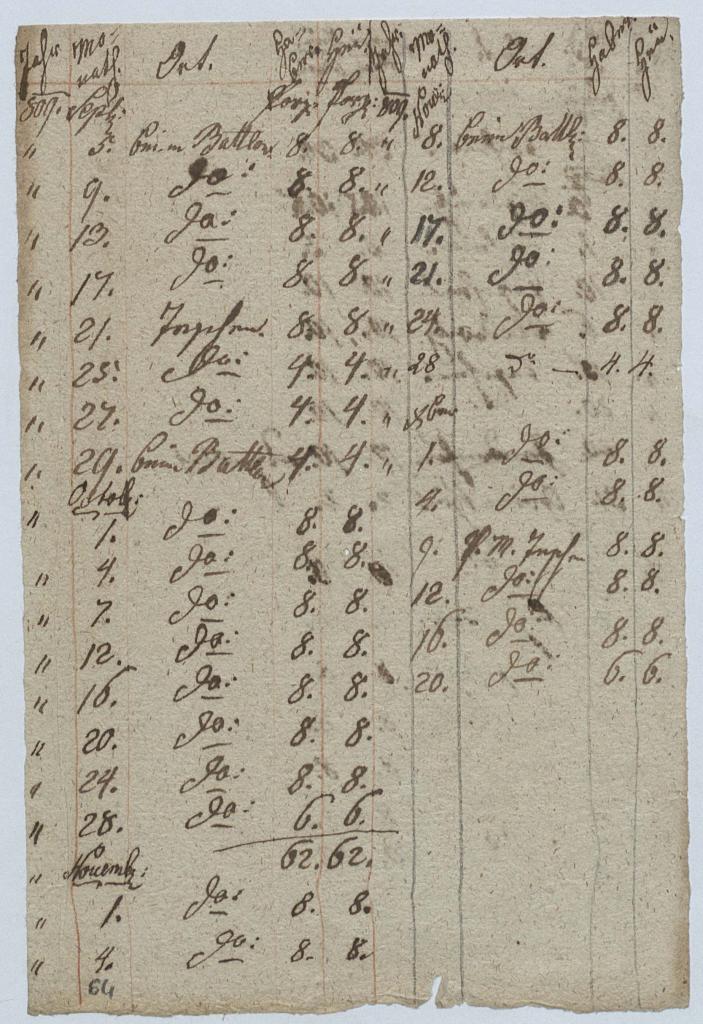 Jahr Mo- nath. Ort. Ha- ber Heu
809. Sept: Porz: Porz:
" 5. beim Battler 8. 8.
" 9. do: 8. 8.
" 13. do: 8. 8.
" 17. do: 8. 8.
" 21. 8. 8.
" 25. do: 4. 4.
" 27. do: 4. 4.
" 29. beim Battler 4. 4.
" Octob:
1. do: 8. 8.
" 4. do: 8. 8.
" 7. do: 8. 8.
" 12. do: 8. 8.
" 16. do: 8. 8.
" 20. do: 8. 8.
" 24. do: 8. 8.
" 28. do: 6. 6.
62. 62.
" Novemb:
" 1. do: 8. 8.
" 4. do: 8. 8.
64
Jahr: Mo- nath. Ort. Haber. Heu.
809. Nov:
" 8. beim Battl: 8. 8.
" 12. do: 8. 8.
" 17. do: 8. 8.
" 21. do: 8. 8.
" 24. do: 8. 8.
" 28 do — 4. 4.
" xber
" 1. do: 8. 8.
4. do: 8. 8.
9. P. M. 8. 8.
12. do: 8. 8.
16. do: 8. 8.
20. do: 6. 6.